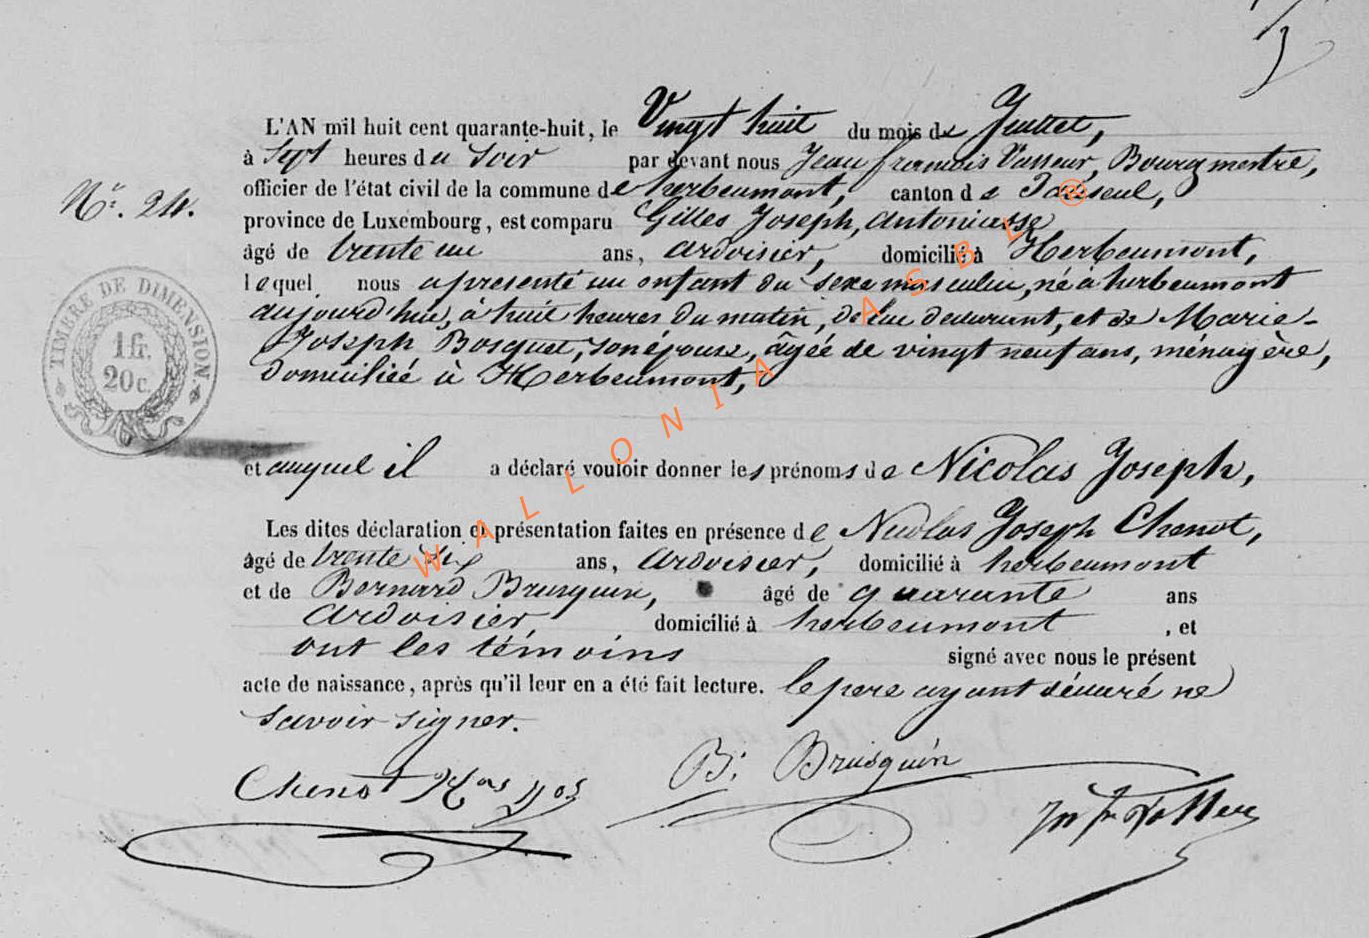 L'AN mil huit cent quarante-huit, le Vingt huit du mois de Juillet,
à Sept heures du Soir par devant nous Jean françois Vasseur, Bourgmestre,
officier de l'état civil de la commune de herbeumont, canton de Paliseul,
N°. 24.
province de Luxembourg, est comparu Gilles Joseph, Antoniasse
âgé de trente un ans, ardoisier, domicilié à Herbeumont,
lequel nous a présenté un enfant du sexe masculin, né à herbeumont
aujourd'hui, à huit heures du matin, de lui déclarant, et de Marie-
Joseph Bosquet, son épouse, âgée de vingt neuf ans, ménagère,
domiciliée à Herbeumont,
TIMBRE DE DIMENSION
1 fr.
20 c.
et auquel il a déclaré vouloir donner les prénoms de Nicolas Joseph,
Les dites déclaration et présentation faites en présence de Nicolas Joseph Chenot,
âgé de trente six ans, ardoisier, domicilié à herbeumont
et de Bernard Brusquin, âgé de quarante ans
Ardoisier domicilié à herbeumont, et
ont les témoins signé avec nous le présent
acte de naissance, après qu'il leur en a été fait lecture. le père ayant déclaré ne
savoir signer.
Chenot Nas Jos
B: Brusquin
WALLONIA ASBL @